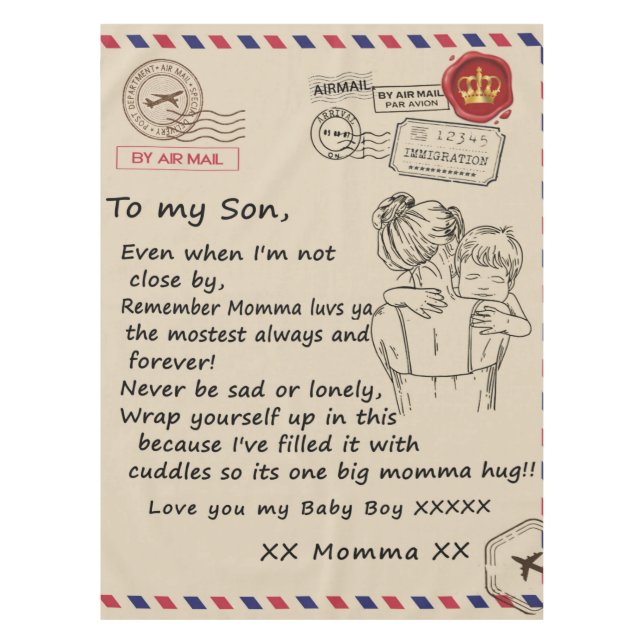 POST DEPARTMENT • AIR MAIL • SPECIAL DELIVERY •
BY AIR MAIL
AIRMAIL
BY AIR MAIL
PAR AVION
ARRIVAL
ON
12345
IMMIGRATION
To my Son,
Even when I'm not
close by,
Remember Momma luvs ya
the mostest always and
forever!
Never be sad or lonely,
Wrap yourself up in this
because I've filled it with
cuddles so its one big momma hug!!
Love you my Baby Boy XXXXX
XX Momma XX